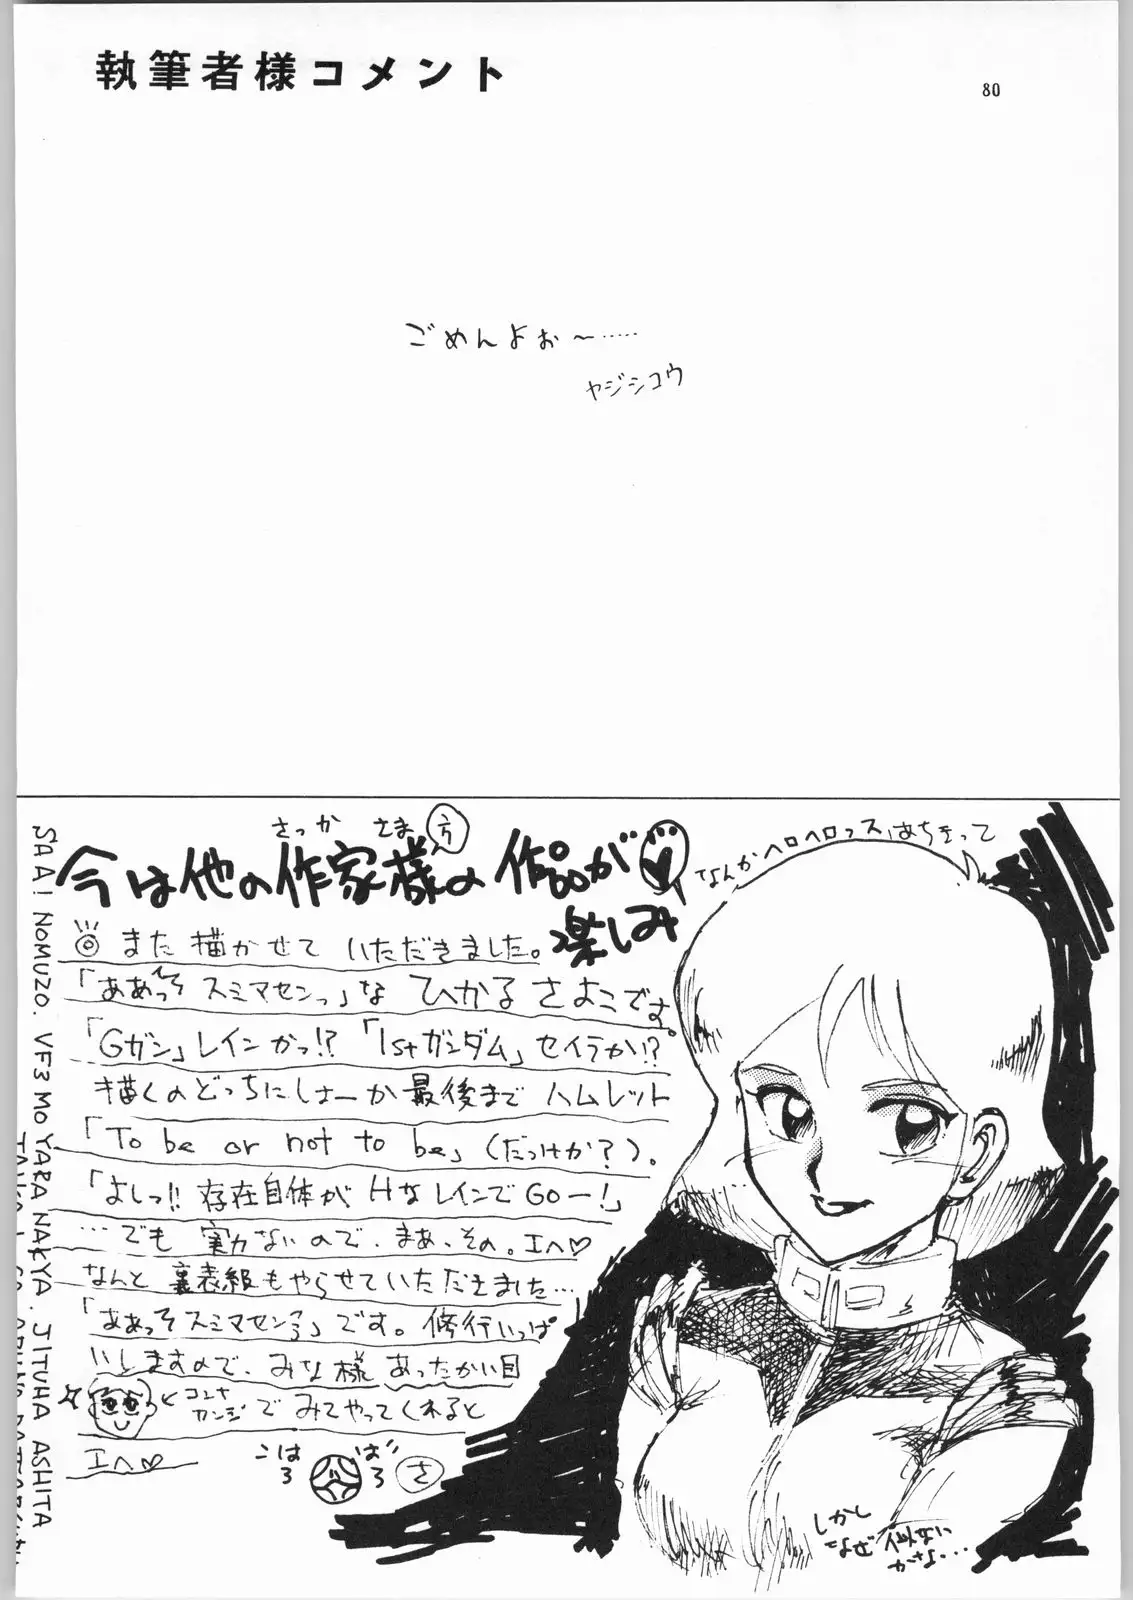 執筆者様コメント
80
ごめんよぉ〜……
ヤジシコウ
さっか さま 方
今は他の作家様の作品が
楽しみ
なんかヘロヘロっス
◎また描かせていただきました。
「ああっそスミマセンっ」な ひかるさよこです。
「Gガン」レインかっ!? 「1stガンダム」セイラか!?
描くのどっちにしよーか最後までハムレット
「To be or not to be」(だっけか?)。
「よしっ!! 存在自体がHなレインでGOー!」
…でも 実力ないので、まぁ、その。エヘ♡
なんと裏表紙もやらせていただきました…
「ああっそスミマセンっ」です。修行いっぱ
いしますので、みな様 あったかい目
コンナ
カンジ
でみてやってくれると
エヘ♡
さ
しかし
なぜ似ない
かさな…
SAA! NOMUZO. VF3 MO YARANAKYA. JITUHA ASHITA